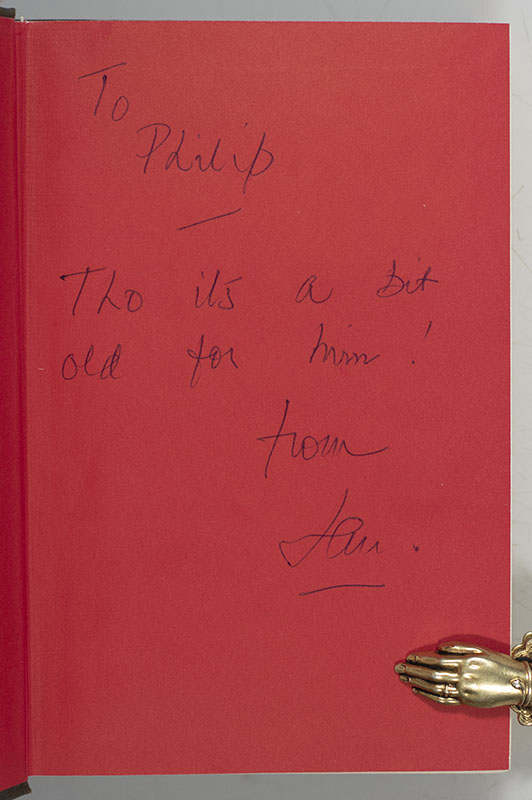 To
Philip
—
Tho it's a bit
old for him!
from
Ian.